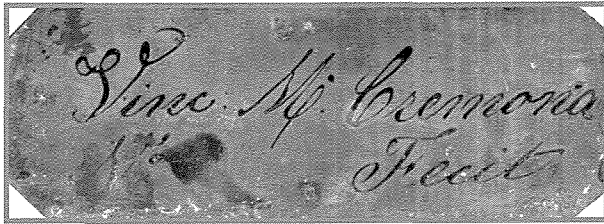 Vinc. M. Cremona
Fecit